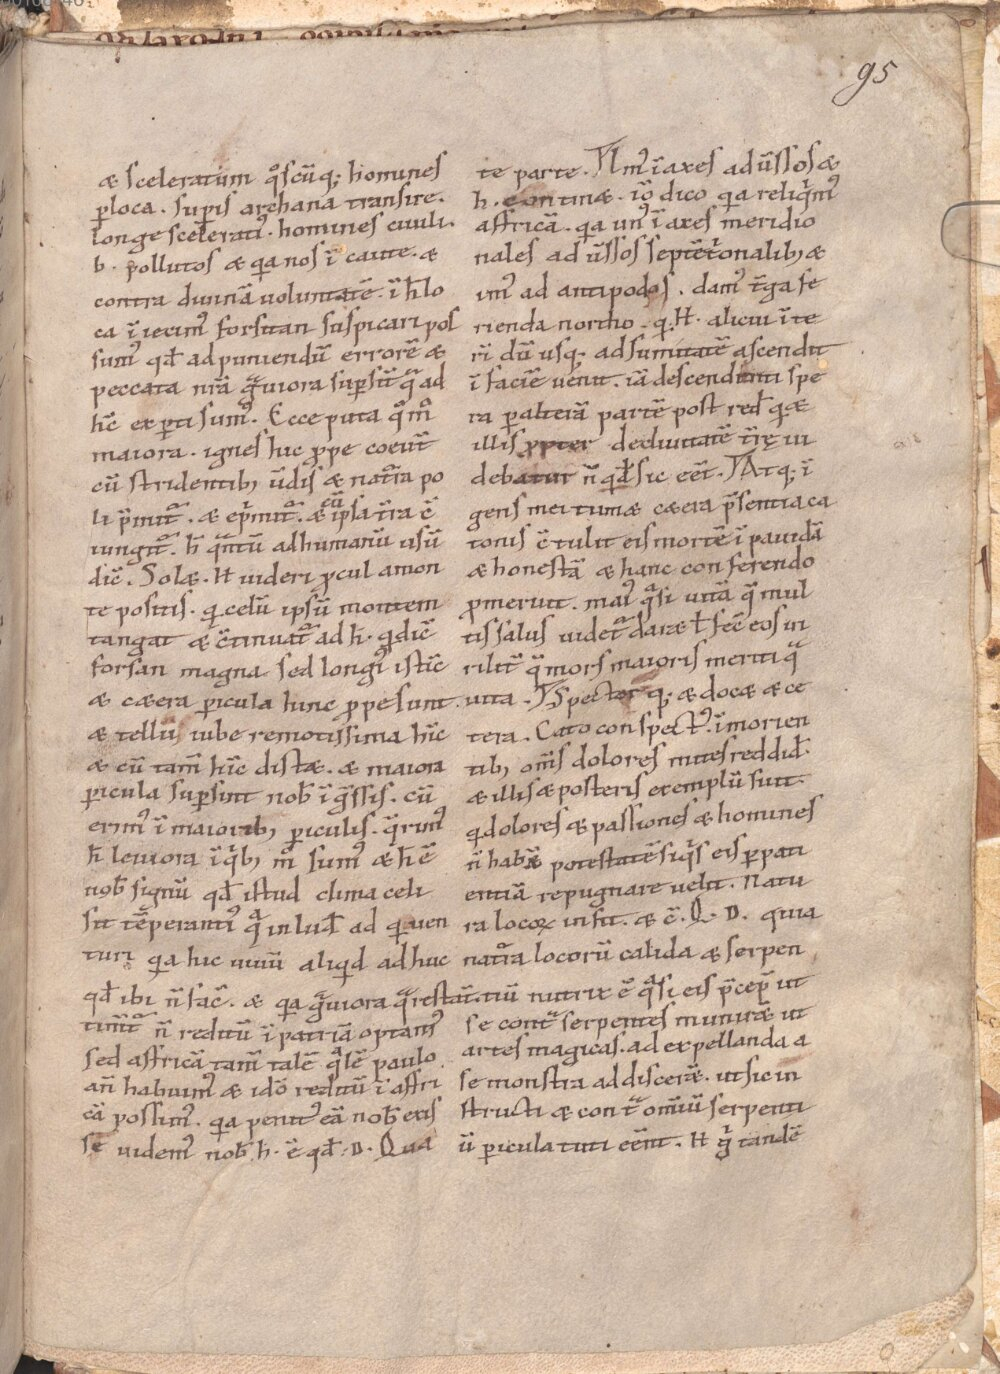 95
æ sceleratum q̊scūq; homines
ꝑ loca. suꝑis archana transire.
longe scelerati᾽. homines cuuli.
b. pollutos æ qa nos ī caute. æ
contra diuinā uoluntatē. ī h̄ lo
ca ī iecim᾽ forsitan suspicari pos
sum᾽ qd̄ ad puniendū errorē æ
peccata nr̄a g̃uiora suꝑsūt q̃ ad
hc̄ exꝑti sum᾽. Ecce puta q̊ m̊
maiora. ignes huc ꝓpe coeūt
cū stridentib; ūdis æ nat̄ra po
li p̄mit᷑. æ ep̄mit᷑. æ cū ipsa t̄ra c̄
iungit᷑. h̄ q̃ntū ad humanū uisū
dic̄. Solæ. H uideri ꝓcul a mon
te positis. q celū ipsū montem
tangat æ c̄tinuat᷑ ad h̄. qdic̄
forsan magna sed longi᾽ istic̄
æ cæera ꝑicula hinc ꝓpe sunt.
æ tellu᾽ iube remotissima hic̄
æ cū tam̄ hic̄ distæ. æ maiora
ꝑicula suꝑsint nob̄ ī g̃ssis. cū
erim᾽ ī maiorib; ꝑiculis. q̄rim᾽
h̄ leuiora ī qb; m̊ sum᾽ æ h̄ ē
nob̄ signū qd̄ istud clima celi
sit tēperanti᾽ q̃ in lud̄ ad q uen
turi qa hic uiuū aliqd adhuc
qd̄ ibi n̄ fac̄. æ qa g̃uiora q̃ restāt.
timet᷑ n̄ reditū ī patriā optam᾽
sed affricā tam̄ talē q̃lē paulo
an̄ habuim᾽ æ idō reditū ī affri
cā possim᾽. qa penit᾽ eā nob̄ exis
se uidem᾽ nob̄ h̄. ē qd̄ .D. Qua
te parte. Nm᾽ ī axes ad ūssos æ
h. continæ. iō dico qa reliq̄m᾽
affricā. qa un᾽ ī axes meridio
nales ad ūssos septētonalib; æ
im᾽ ad antipodos. dam᾽ t̄ga fe
rienda notho. q; H. alicui ī te
ri᾽ dū usq; ad sumitatē ascendit
ī faciē uenit. iā descendenti spe
ra ꝑ alterā partē post red̄ q; æ
illis ꝓpter decliuitatē t̄rę ui
debatur n̄ qd̄ sic eēt. Atq; ī
gens meritumæ cæera p̄sentia ca
tonis c̄tulit eis mortē ī pauidā
æ honestā æ hanc conferendo
ꝓmeruit. mai᾽ q̃si uitā q̃ mul
tis salus uidet᷑ daræ ł fec̄ eos ui
rilit᷑ q̃ mors maioris meriti q̃
uita. Spector q; æ docæ æ ce
tera. Cato conspect᾽. ī morien
tib; om̄s dolores mites reddid̄.
æ illis æ posteris exemplū fuit.
q dolores æ passiones æ homines
n̄ habēæ potestatē siq̄s eis ꝑ pati
entiā repugnare uelit. Natu
ra locoꝝ infit. æ c̄. Q. D. quia
nat̄ra locorū calida æ serpen
tiū nutrix ē q̃si eis p̄cep̄ ut
se cont᷑ serpentes muniræ ut
artes magicas. ad expellanda a
se monstra addisceræ. ut sic in
structi æ cont᷑ omniū serpenti
ū ꝑicula tuti eēnt. H g̊ tandē